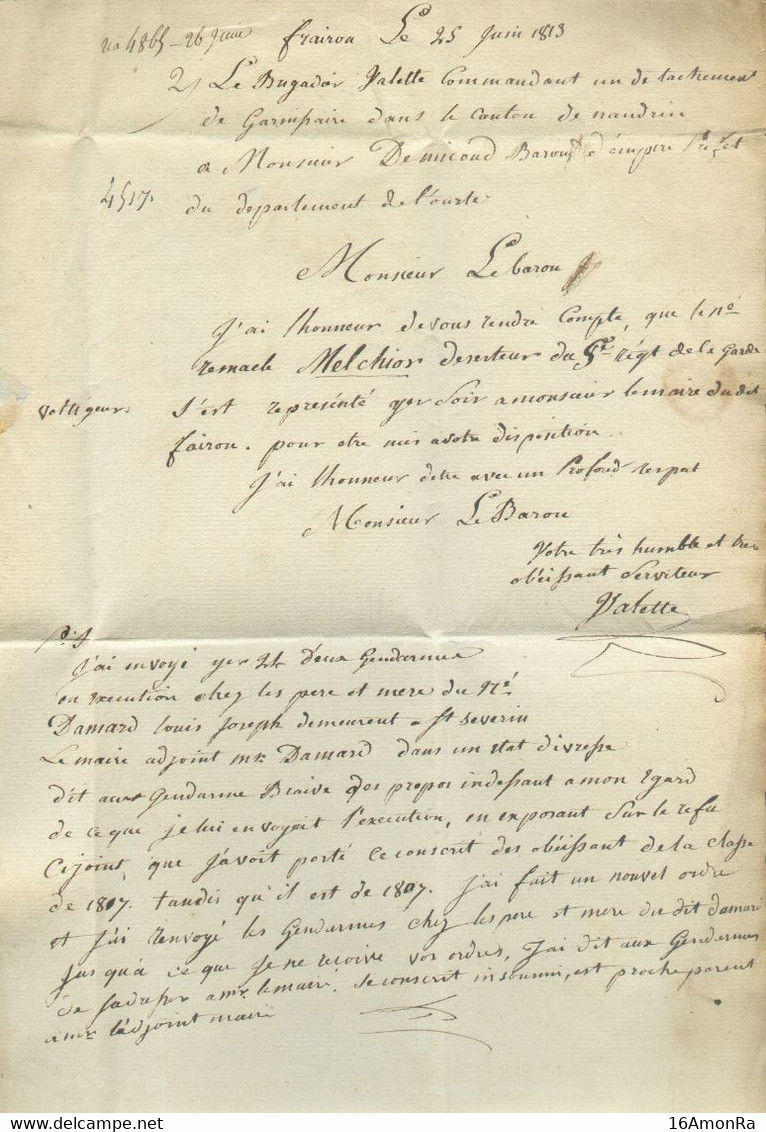 no 4865 - 26 Juin frairou Le 25 Juin 1813
Le Brigadier Valette Commandant un detachement
de Garnisaire dans le Canton de nandrin
a Monsieur Demicoud Baron d'empire Prefet
4517. du departement de l'ourte
Monsieur Le baron
J'ai lhonneur de vous rendre Compte, que le né
remacle Melchior deserteur du 5e régt de la Garde
voltigeurs S'est representé yer Soir a monsieur lemaire du dit
fairou. pour etre mis a votre disposition.
J'ai lhonneur detre avec un Profond respat
Monsieur Le Baron
Votre très humble et tres
obéissant Serviteur
Valette
P.S
J'ai envoyé yer 24 deux Gendarmes
en execution chez les pere et mere du né
Damard louis Joseph demeurent a St Severin
Le maire adjoint mr Damard dans un etat d'ivresse
dit aux Gendarme Biaive des propos indessant a mon Egard
de ce que je lui envoyait l'execution, en exposant Sur le refu
Cijoint, que J'avoit porté ce conscrit des obéissant de la classe
de 1807. tandis qu'il est de 1807. J'ai fait un nouvel ordre
et J'ai renvoyé les Gendarmes chez les pere et mere du dit damard
Jus qu'a ce que Je ne recoive vos ordres, J'ai dit aux Gendarmes
de sadresser a mr. le maire. Le conscrit insoumi, est proche parent
a mr ladjoint maire
16AmonRa